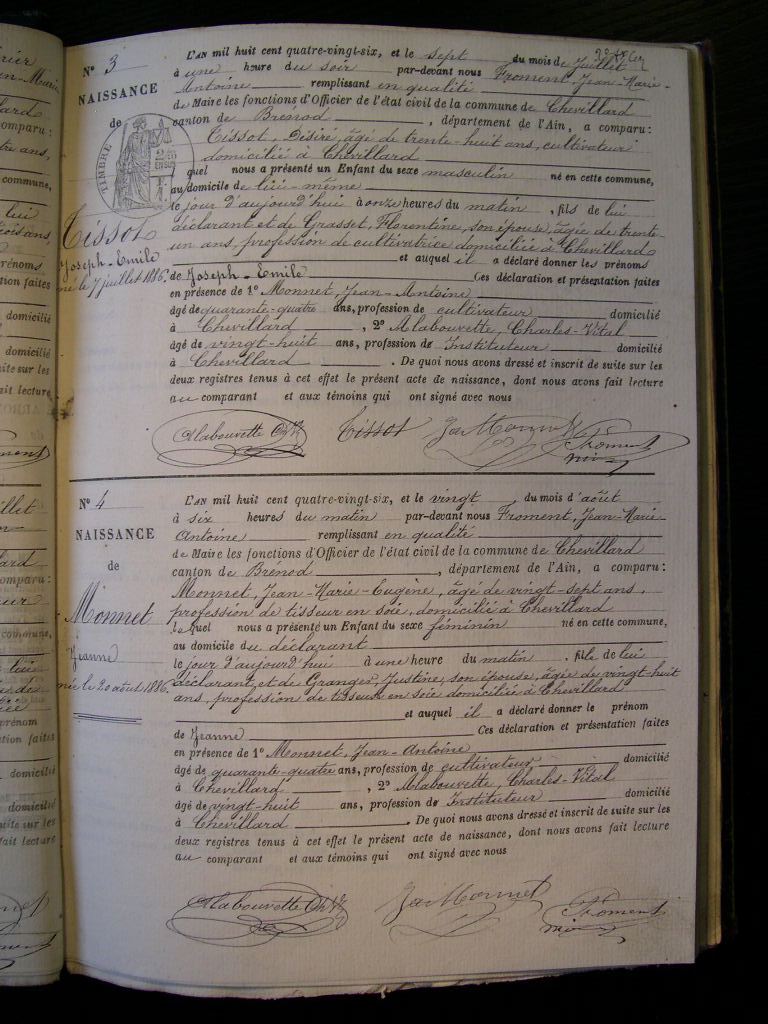 N° 3
NAISSANCE
de
TIMBRE
Tissot
Joseph-Emile
né le 7 juillet 1886.
L'AN mil huit cent quatre-vingt-six, et le sept du mois de Juillet
à une heure du soir par-devant nous Froment, Jean-Marie-
Antoine remplissant en qualité
de Maire les fonctions d'Officier de l'état civil de la commune de Chevillard
canton de Brénod, département de l'Ain, a comparu:
Tissot, Désiré, âgé de trente-huit ans, cultivateur
domicilié à Chevillard
quel nous a présenté un Enfant du sexe masculin né en cette commune,
au domicile de lui-même
le jour d'aujourd'hui à onze heures du matin, fils de lui
déclarant et de Grasset, Florentine, son épouse, âgée de trente-
un ans, profession de cultivatrice domiciliée à Chevillard
et auquel il a déclaré donner les prénoms
de Joseph-Emile Ces déclaration et présentation faites
en présence de 1° Monnet, Jean-Antoine
âgé de quarante-quatre ans, profession de cultivateur domicilié
à Chevillard, 2° Alabouvette, Charles-Vital
âgé de vingt-huit ans, profession de Instituteur domicilié
à Chevillard. De quoi nous avons dressé et inscrit de suite sur les
deux registres tenus à cet effet le présent acte de naissance, dont nous avons fait lecture
au comparant et aux témoins qui ont signé avec nous
Alabouvette Ch V Tissot Ja Monnet Froment
N° 4
NAISSANCE
de
Monnet
Jeanne
née le 20 août 1886.
L'AN mil huit cent quatre-vingt-six, et le vingt du mois d'août
à six heures du matin par-devant nous Froment, Jean-Marie-
Antoine remplissant en qualité
de Maire les fonctions d'Officier de l'état civil de la commune de Chevillard
canton de Brénod, département de l'Ain, a comparu:
Monnet, Jean-Marie-Eugène, âgé de vingt-sept ans,
profession de tisseur en soie, domicilié à Chevillard
lequel nous a présenté un Enfant du sexe féminin né en cette commune,
au domicile du déclarant
le jour d'aujourd'hui à une heure du matin, fille de lui
déclarant, et de Granges, Justine, son épouse, âgée de vingt-huit
ans, profession de tisseuse en soie domiciliée à Chevillard
et auquel il a déclaré donner le prénom
de Jeanne Ces déclaration et présentation faites
en présence de 1° Monnet, Jean-Antoine
âgé de quarante-quatre ans, profession de cultivateur domicilié
à Chevillard, 2° Alabouvette, Charles-Vital
âgé de vingt-huit ans, profession de Instituteur domicilié
à Chevillard. De quoi nous avons dressé et inscrit de suite sur les
deux registres tenus à cet effet le présent acte de naissance, dont nous avons fait lecture
au comparant et aux témoins qui ont signé avec nous
Alabouvette Ch V Ja Monnet Froment